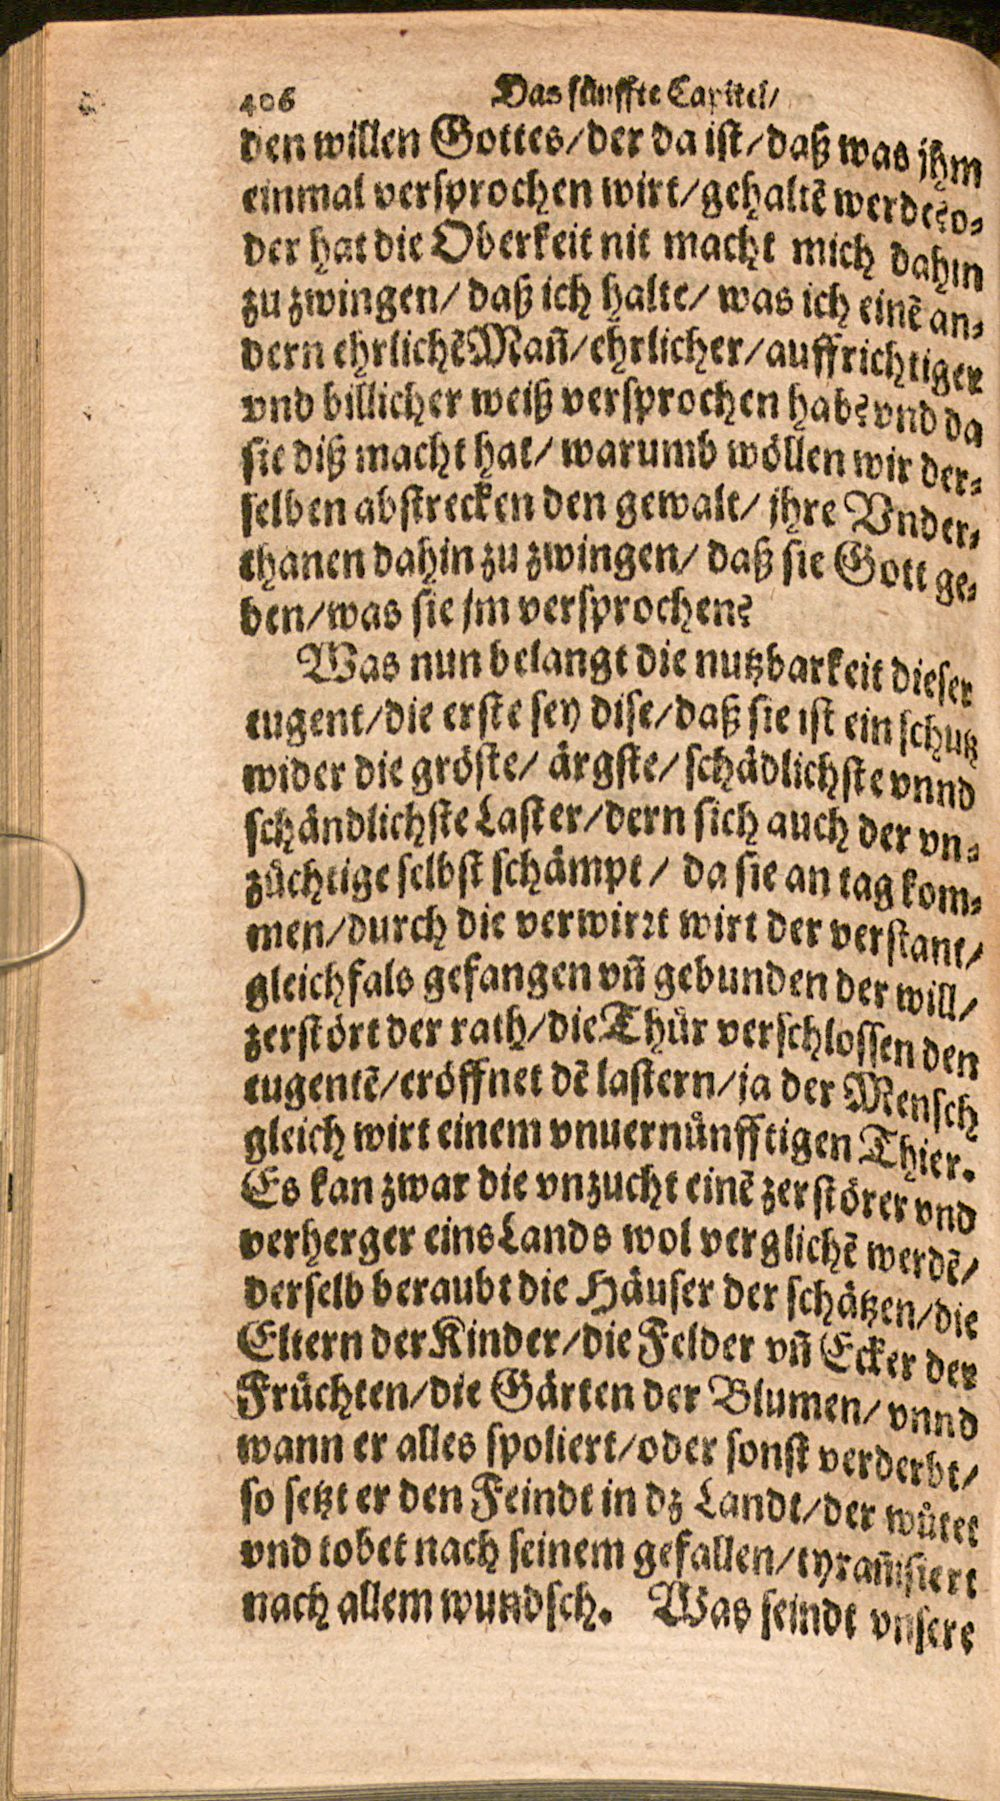 406 Das fünffte Capitel/
den willen Gottes/der da ist/daß was jhm
einmal versprochen wirt/gehaltē werde?o-
der hat die Oberkeit nit macht mich dahin
zu zwingen/ daß ich halte/ was ich einē an-
dern ehrlichē Mañ/ehrlicher/auffrichtiger
vnd billicher weiß versprochen hab?vnd da
sie diß macht hat/ warumb wöllen wir der-
selben abstrecken den gewalt/ jhre Vnder-
thanen dahin zu zwingen/ daß sie Gott ge-
ben/was sie jm versprochen?
Was nun belangt die nutzbarkeit dieser
tugent/die erste sey dise/daß sie ist ein schutz
wider die gröste/ ärgste/ schädlichste vnnd
schändlichste Laster/dern sich auch der vn-
züchtige selbst schämpt/ da sie an tag kom-
men/durch die verwirꝛt wirt der verstant/
gleichfals gefangen vñ gebunden der will/
zerstört der rath/die Thür verschlossen den
tugentē/eröffnet dē lastern/ja der Mensch
gleich wirt einem vnuernünfftigen Thier.
Es kan zwar die vnzucht einē zerstörer vnd
verherger eins Lands wol verglichē werdē/
derselb beraubt die Häuser der schätzen/die
Eltern der Kinder/die Felder vñ Ecker der
Früchten/die Gärten der Blumen/ vnnd
wann er alles spoliert/oder sonst verderbt/
so setzt er den Feindt in dz Landt/der wütet
vnd tobet nach seinem gefallen/tyrañisiert
nach allem wundsch. Was seindt vnsere